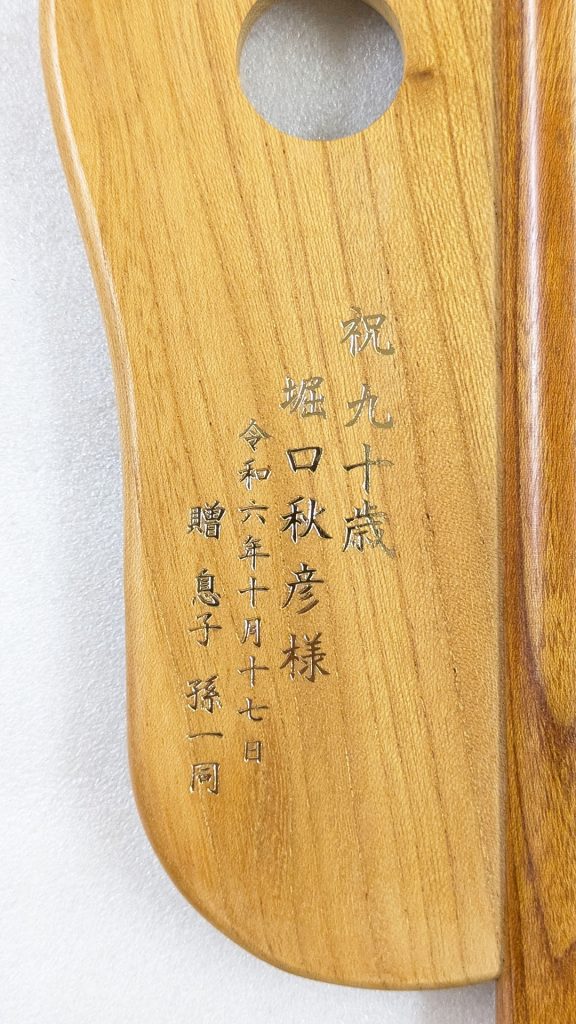 祝 九十歳
堀口秋彦様
令和六年十月十七日
贈 息子 孫一同